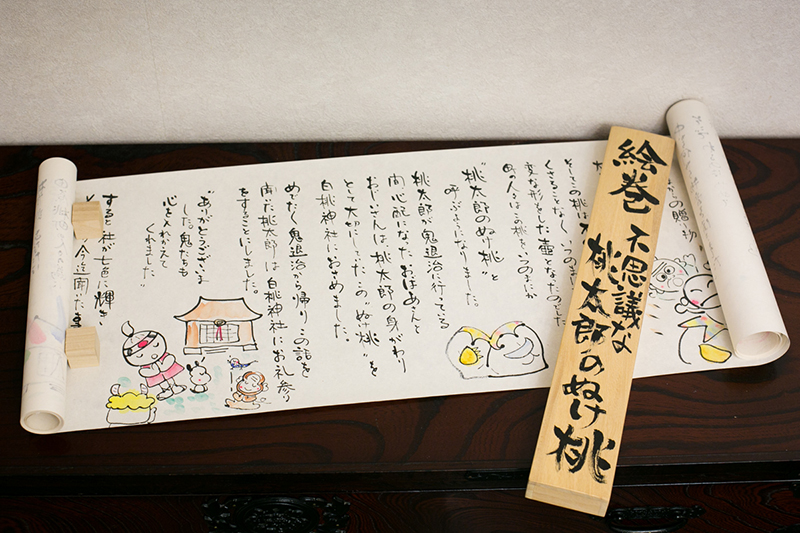 絵巻
不思議な
桃太郎のぬけ桃
の贈り物
そしてこの桃は
くさることなく、いつのまにか
変な形をした壺となったのでした
この桃を、いつのまにか
"桃太郎のぬけ桃"と
呼ぶようになりました。
桃太郎が鬼退治に行っている
間心配になったおばあさんと
おじいさんは、桃太郎の身がわり
とて大切にしていたこの"ぬけ桃"を
白桃神社におさめました。
めでたく鬼退治から帰り、この話を
聞いた桃太郎は白桃神社にお礼参り
をすることにしました。
"ありがとうございま
した。鬼たちも
心を入れかえて
くれました"
すると 桃が七色に輝き